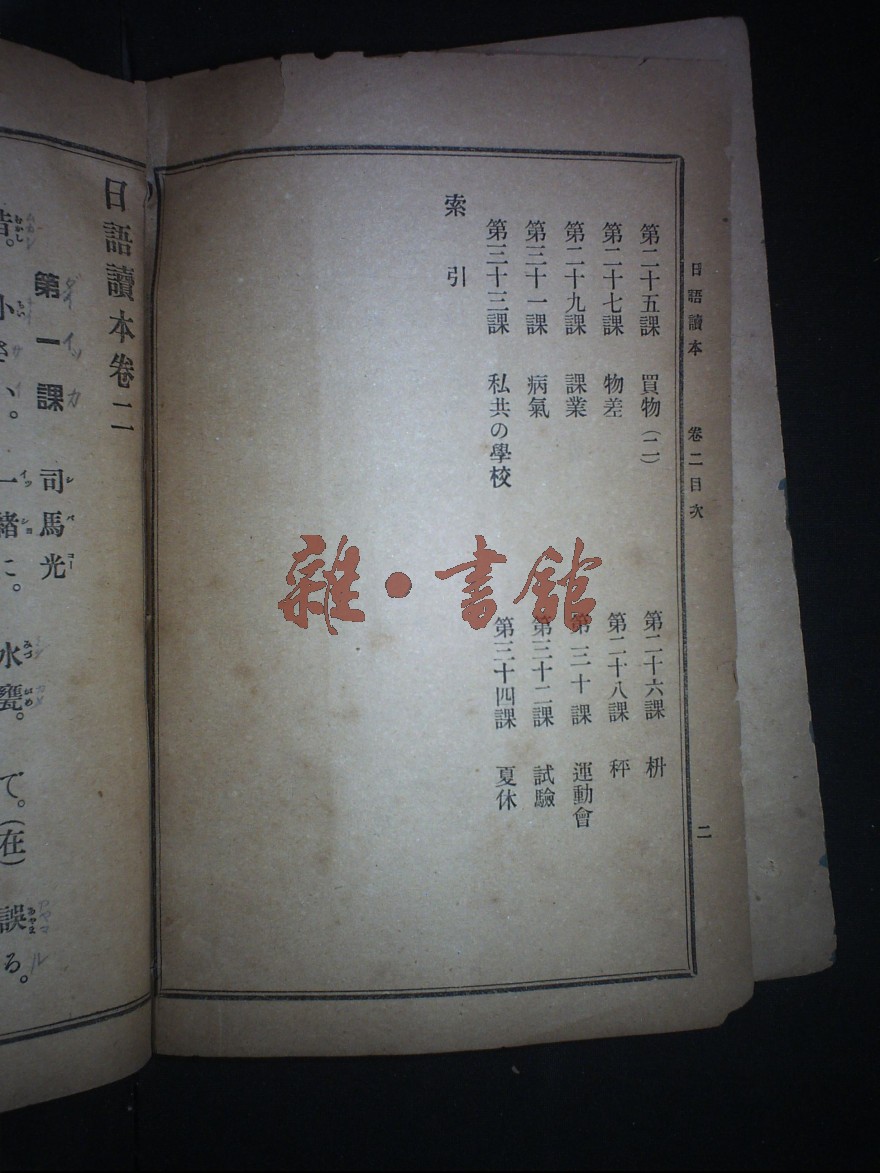 日語讀本　卷二目次　二
第二十五課　買物（二）　第二十六課　枡
第二十七課　物差　第二十八課　秤
第二十九課　課業　第三十課　運動會
第三十一課　病氣　第三十二課　試驗
第三十三課　私共の學校　第三十四課　夏休
索引
雜・書館
日語讀本卷二
第一課　司馬光
ダイ イッ カ
昔。小さい。一緒に。水甕。て。（在）誤る。
むかし イッ ショ みづ がめ あやま